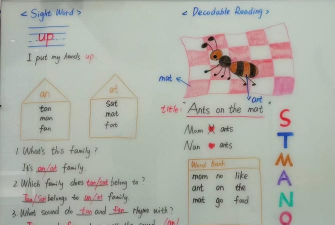 < Sight Word >
up
I put my hands up.
an
tan
man
fan
at
sat
mat
fat
1. What's this family?
It's an/at family.
2. Which family does tan/sat belong to?
Tan/Sat belongs to an/at family.
3. What sound do tan and fan rhyme with?
< Decodable Reading >
mat
ant
title: "Ants on the mat"
Mom ants
Nan ♥ ants
Word Bank
mom no like
ant on the
mat go food
S
T
M
A
N
O